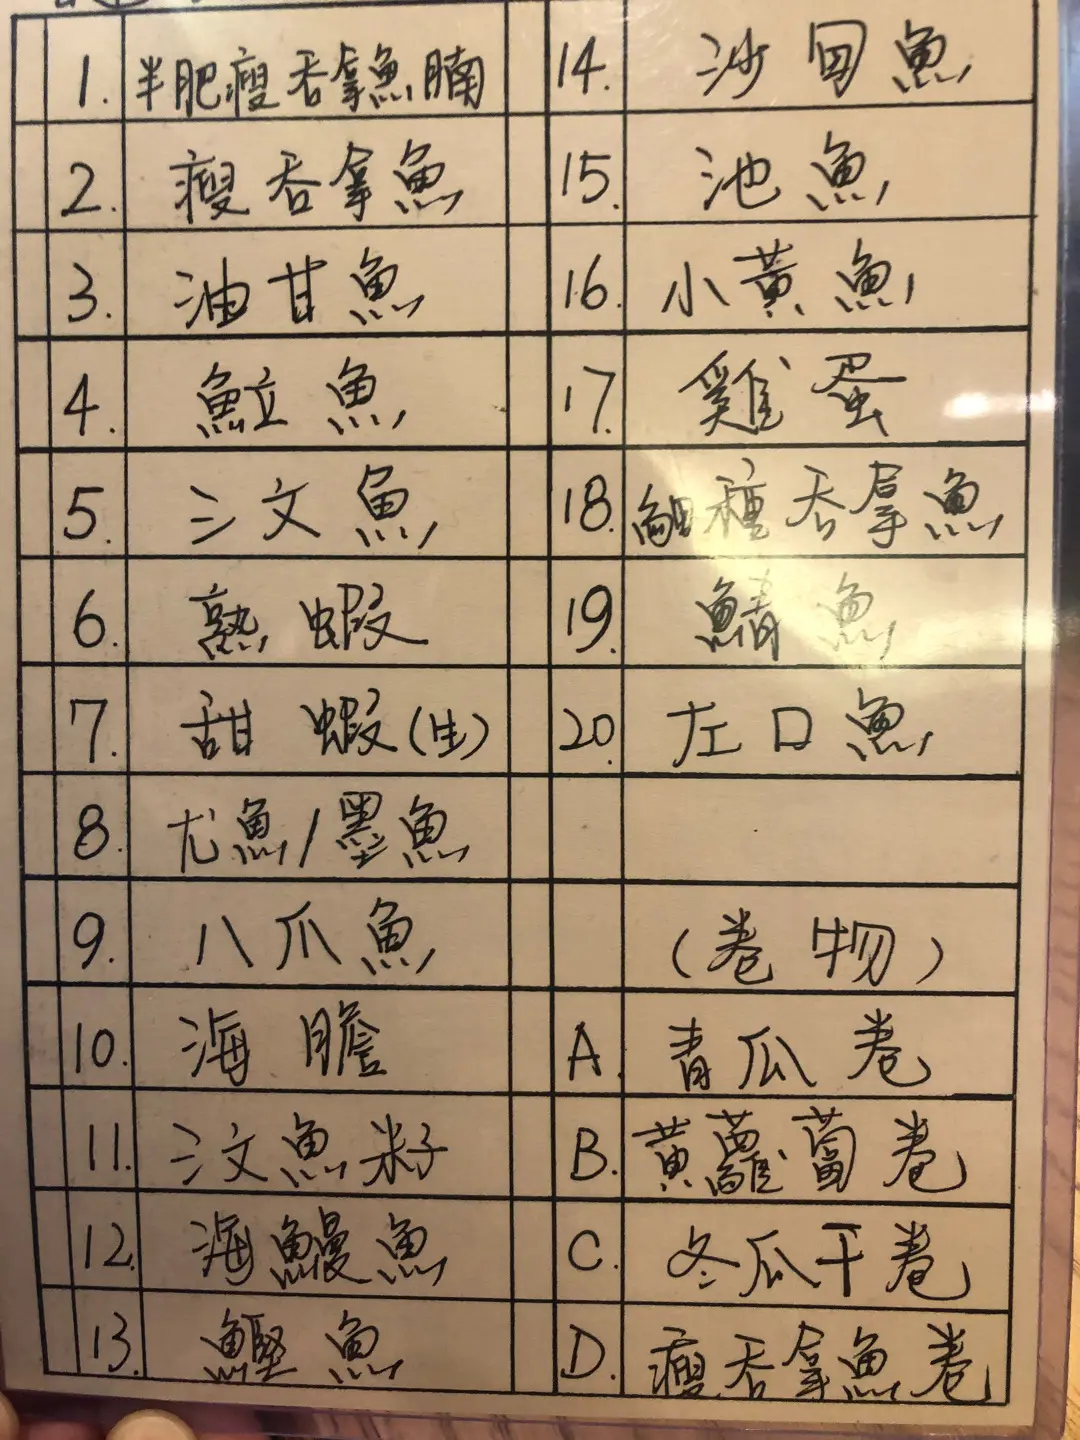 1. 半肥瘦吞拿魚腩
2. 瘦吞拿魚
3. 油甘魚
4. 魚立魚
5. 三文魚
6. 熟蝦
7. 甜蝦(生)
8. 尤魚/墨魚
9. 八爪魚
10. 海膽
11. 三文魚籽
12. 海鰻魚
13. 鰹魚
14. 沙甸魚
15. 池魚
16. 小黃魚
17. 雞蛋
18. 種吞拿魚
19. 鯖魚
20. 左口魚
(卷物)
A. 青瓜卷
B. 黃蘿蔔卷
C. 冬瓜干卷
D. 瘦吞拿魚卷